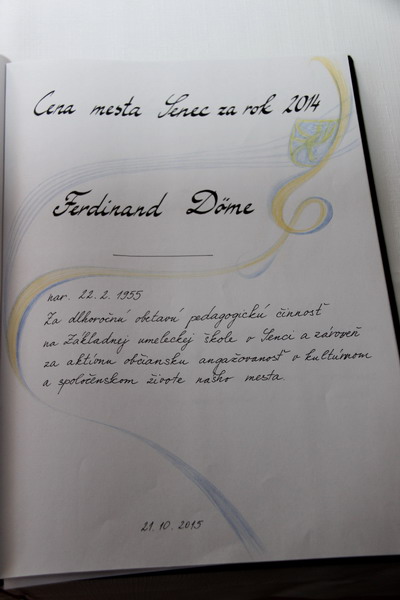 Cena mesta Senec za rok 2014
Ferdinand Döme
nar. 22. 2. 1955
Za dlhoročnú obetavú pedagogickú činnosť
na Základnej umeleckej škole v Senci a zároveň
za aktívnu občiansku angažovanosť v kultúrnom
a spoločenskom živote nášho mesta.
21. 10. 2015